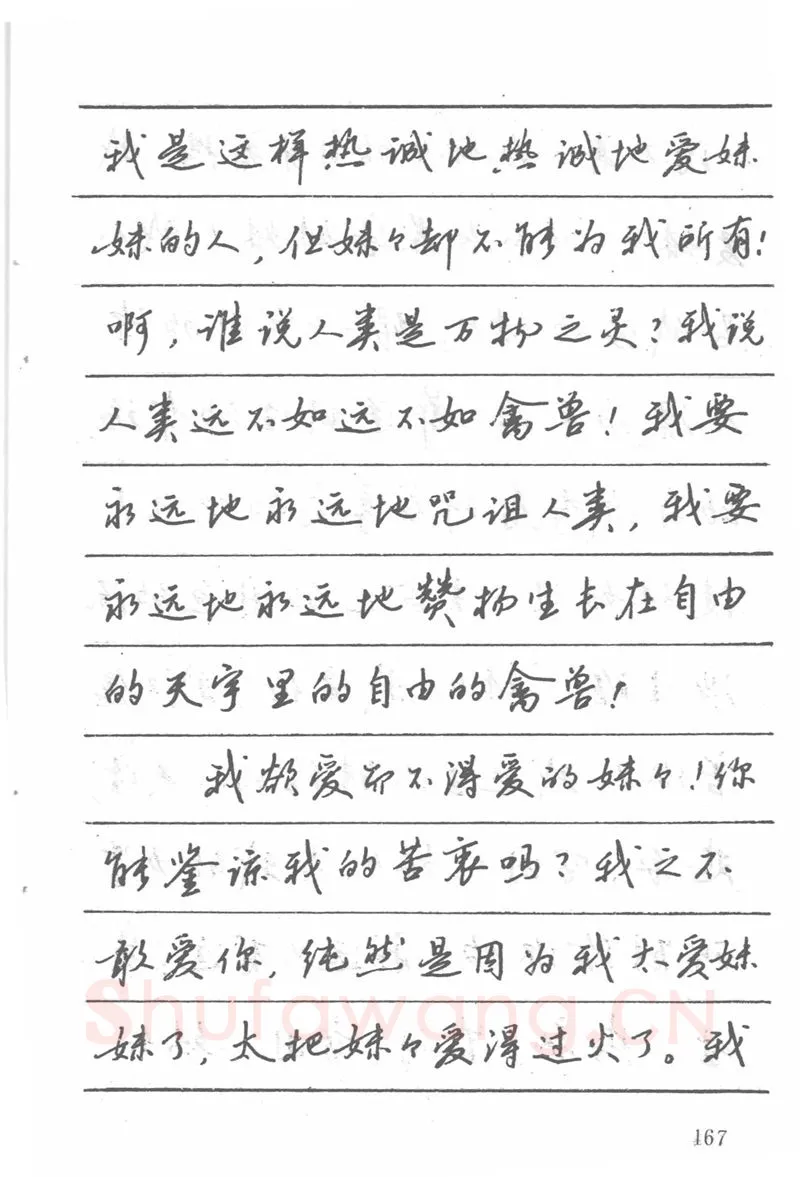 我是这样热诚地热诚地爱妹
妹的人，但妹々却不能为我所有！
啊，谁说人类是万物之灵？我说
人类远不如远不如禽兽！我要
永远地永远地咒诅人类，我要
永远地永远地赞扬生长在自由
的天宇里的自由的禽兽！
我欲爱而不得爱的妹々！你
能鉴谅我的苦衷吗？我之不
敢爱你，纯然是因为我太爱妹
妹了，太把妹々爱得过火了。我
Shufawang.CN
167